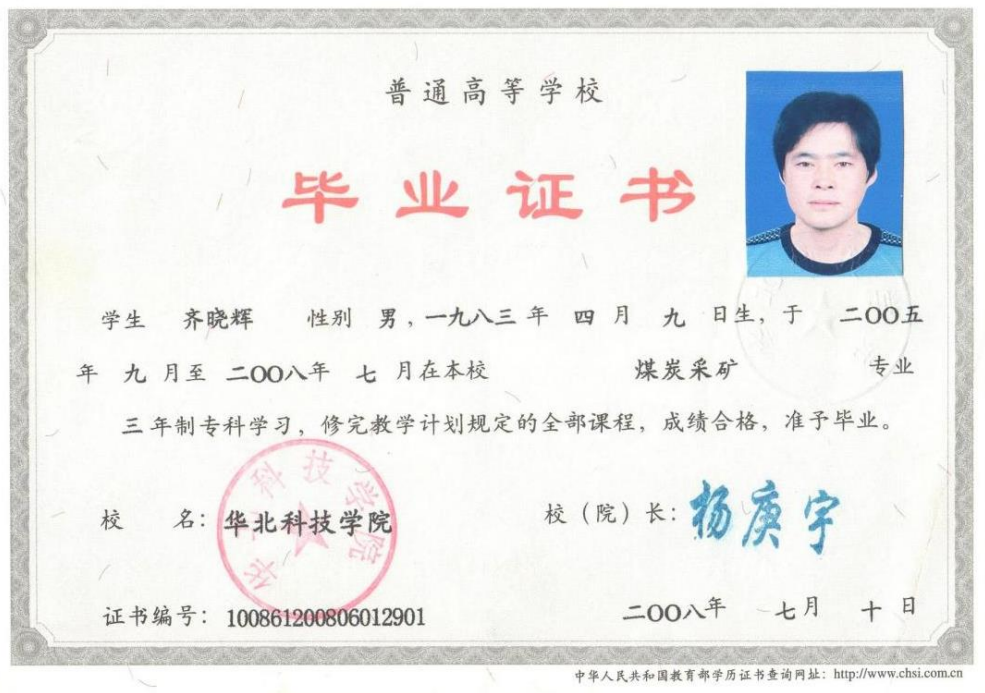 普通高等学校
毕业证书
学生 齐晓辉 性别 男，一九八三年 四 月 九 日生，于 二〇〇五
年 九 月至 二〇〇八年 七 月在本校 煤炭采矿 专业
三年制专科学习，修完教学计划规定的全部课程，成绩合格，准予毕业。
校 名：华北科技学院
校（院）长：杨庚宇
华北科技学院
证书编号：100861200806012901
二〇〇八年 七月 十日
中华人民共和国教育部学历证书查询网址：http://www.chsi.com.cn